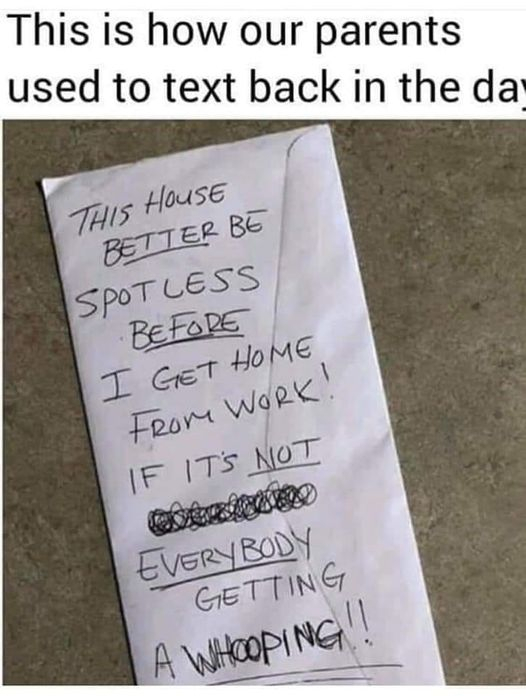 This is how our parents
used to text back in the day
THIS HOUSE
BETTER BE
SPOTLESS
BEFORE
I GET HOME
FROM WORK!
IF IT'S NOT
EVERYBODY
GETTING
A WHOOPING!!